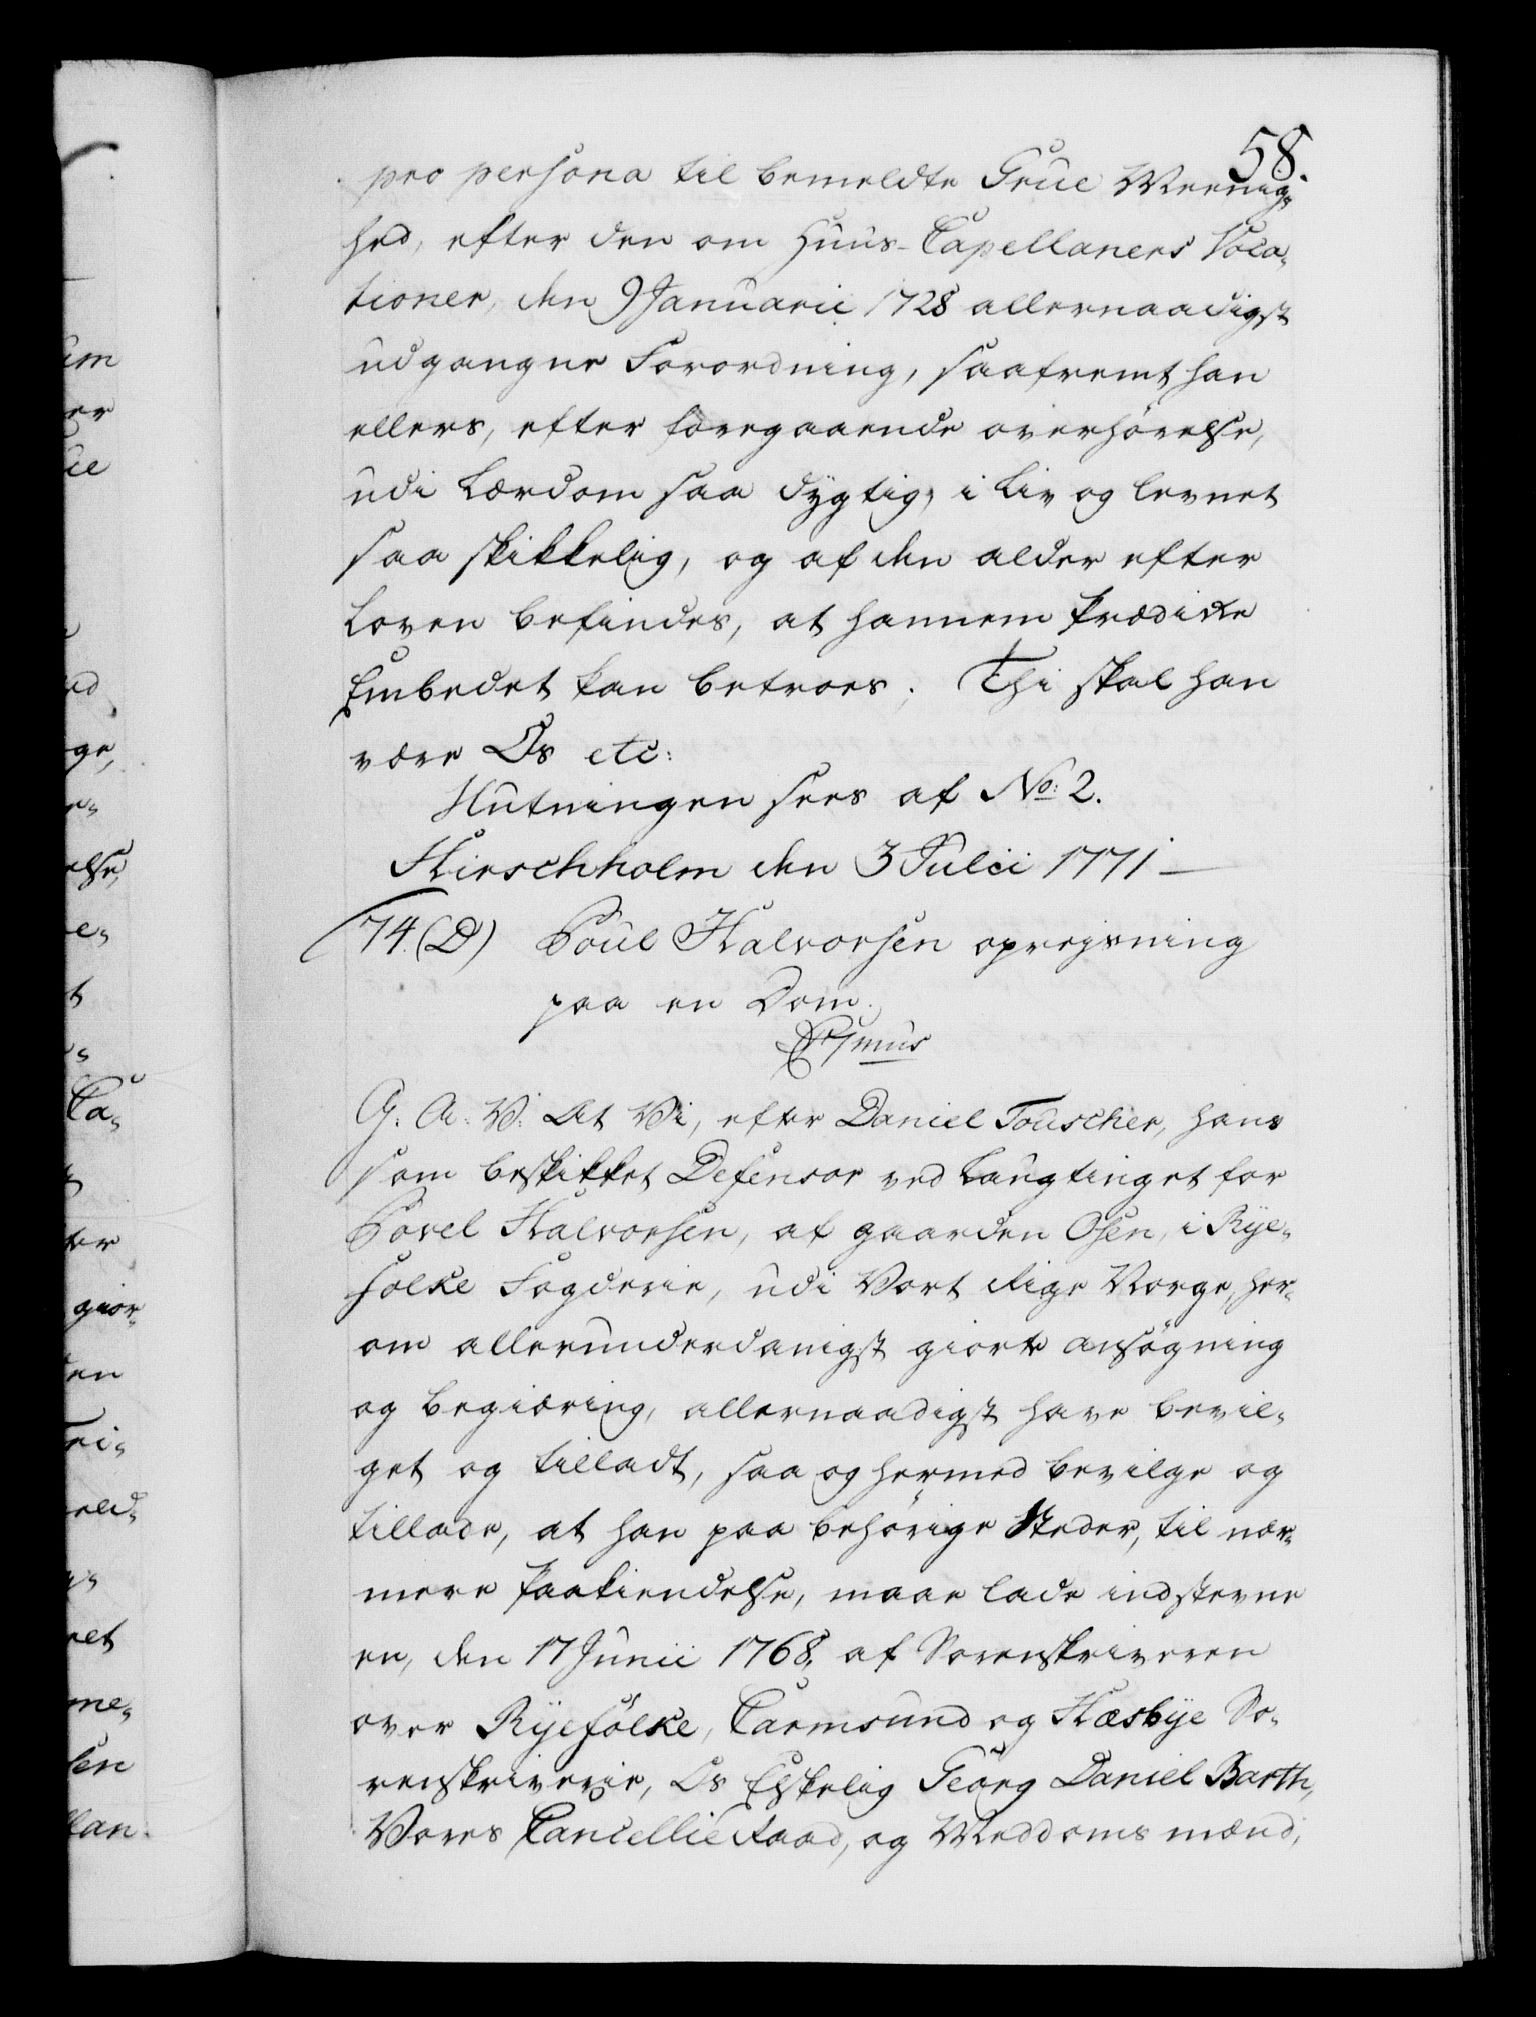 58.
pro persona til bemeldte Grue Meenig-
hed, efter den om Huus-Capellaners Voca-
tioner, den 9 Januarii 1728 allernaadigst
udgangne Forordning, saafremt han
ellers, efter foregaaende overhörelse,
udi Lærdom saa dygtig, i Liv og levnet
saa skikkelig, og af den alder efter
Loven befindes, at hannem Prædicke
Embedet kan betroes; Thi skal han
være Os etc:
Slutningen sees af No: 2.
Hirschholm den 3 Julii 1771
74. (D) Poul Halvorsen opreysning
paa en Dom.
G: A: V: At Vi, efter Daniel Touscher, hans
som beskikket Defensor ved Laugtinget for
Povel Halvorsen, af gaarden Osen, i Rye-
folke Fogderie, udi Vort Rige Norge, her-
om allerunderdanigst giorte ansögning
og begiæring, allernaadigst have bevil-
get og tilladt, saa og hermed bevilge og
tillade, at han paa behörige Steder, til nær-
mere Paakiendelse, maae lade indstevne
en, den 17 Junii 1768, af Sorenskriveren
over Ryefölke, Carmsund og Hæsbye So-
renskriverie, Os Elskelig Georg Daniel Barth,
Vores Cancellie Raad, og Meddoms mænd,